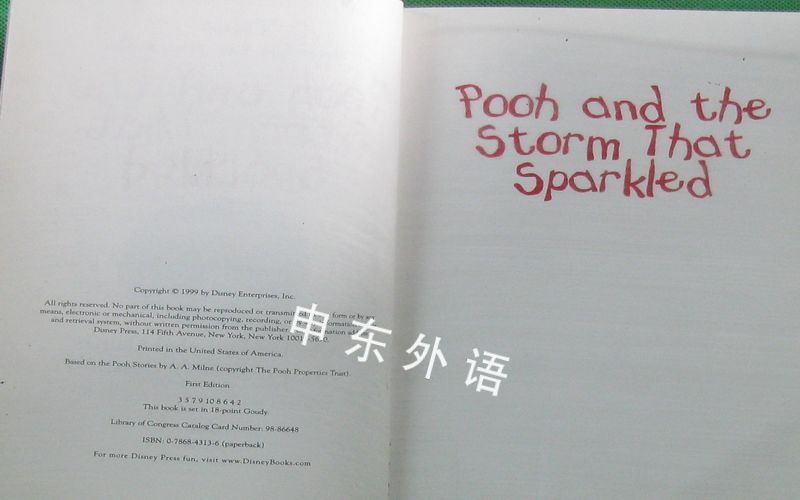 Copyright © 1999 by Disney Enterprises, Inc.
All rights reserved. No part of this book may be reproduced or transmitted form or by any
means, electronic or mechanical, including photocopying, recording, or
and retrieval system, without written permission from the publisher.
Disney Press, 114 Fifth Avenue, New York, New York
Printed in the United States of America.
Based on the Pooh Stories by A. A. Milne (copyright The Pooh Properties Trust).
First Edition
3 5 7 9 10 8 6 4 2
This book is set in 18-point Goudy.
Library of Congress Catalog Card Number: 98-86648
ISBN: 0-7868-4313-6 (paperback)
For more Disney Press fun, visit www.DisneyBooks.com
Pooh and the
Storm That
Sparkled
申东外语